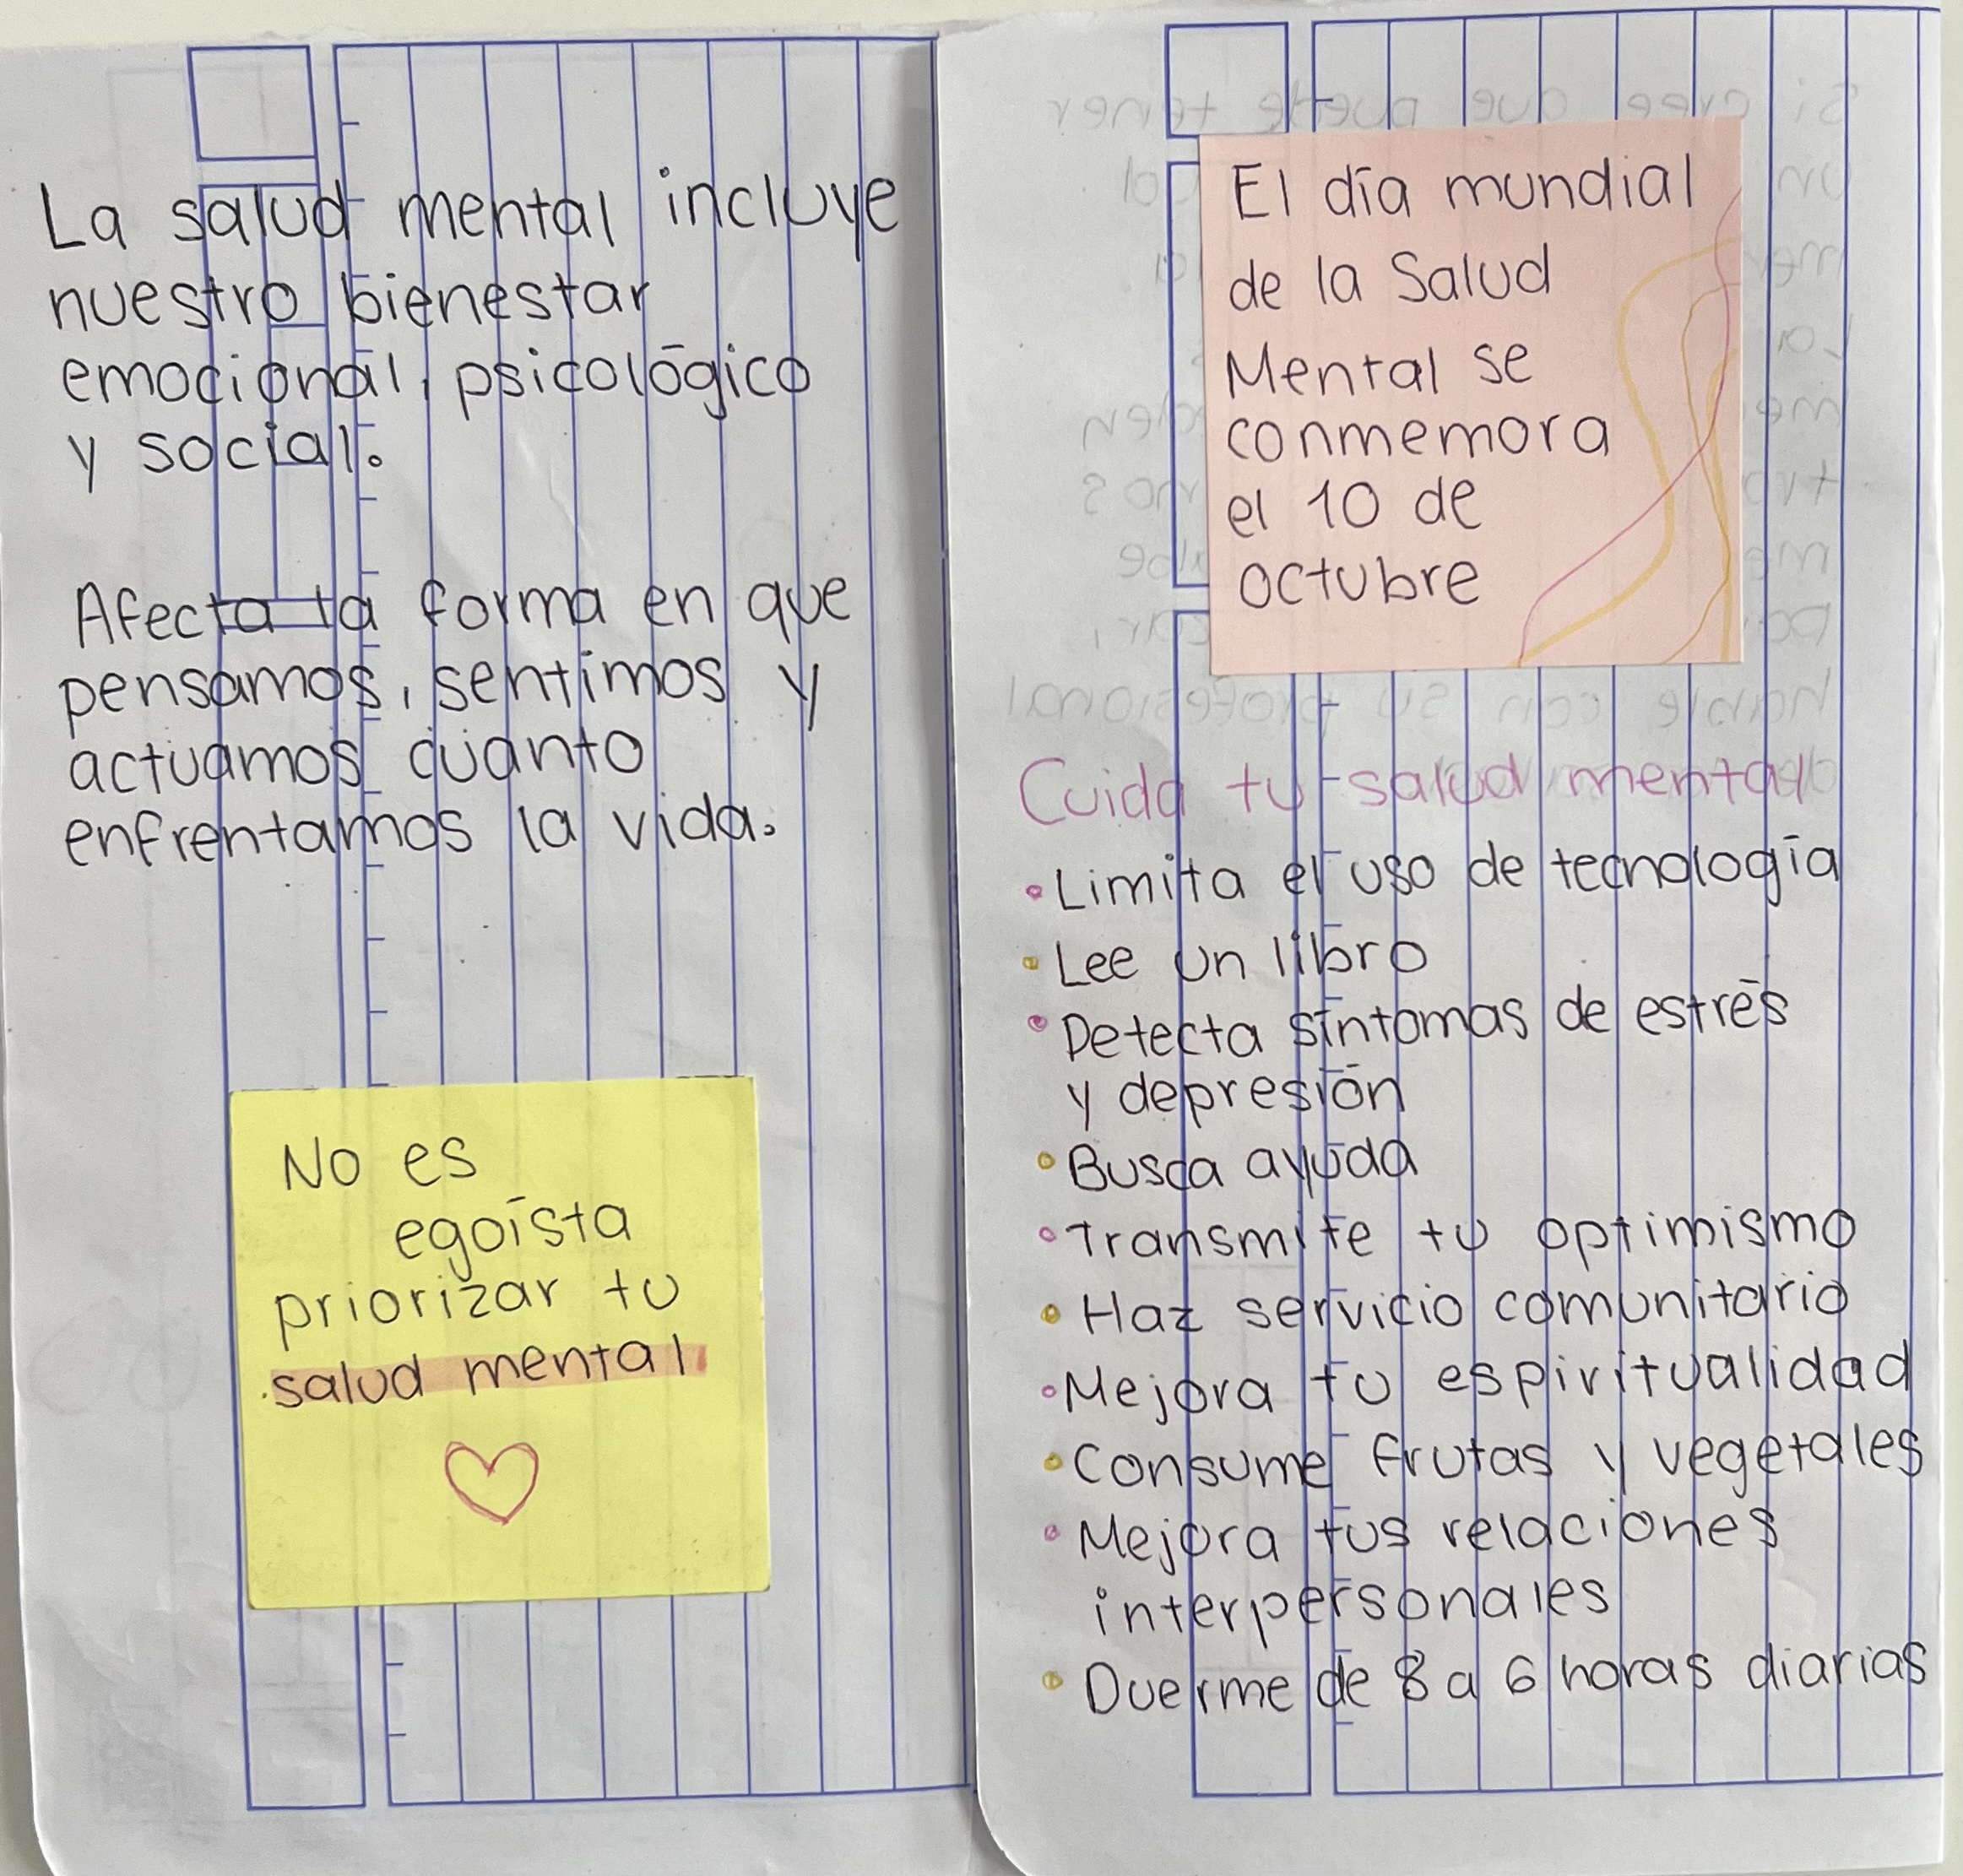 La salud mental incluye
nuestro bienestar
emocional, psicológico
y social.
Afecta la forma en que
pensamos, sentimos y
actuamos cuanto
enfrentamos la vida.
No es
egoísta
priorizar tu
salud mental
El día mundial
de la Salud
Mental se
conmemora
el 10 de
octubre
Cuida tu salud mental
• Limita el uso de tecnología
• Lee un libro
• Detecta síntomas de estrés
y depresión
• Busca ayuda
• Transmite tu optimismo
• Haz servicio comunitario
• Mejora tu espiritualidad
• Consume frutas y vegetales
• Mejora tus relaciones
interpersonales
• Duerme de 8 a 6 horas diarias